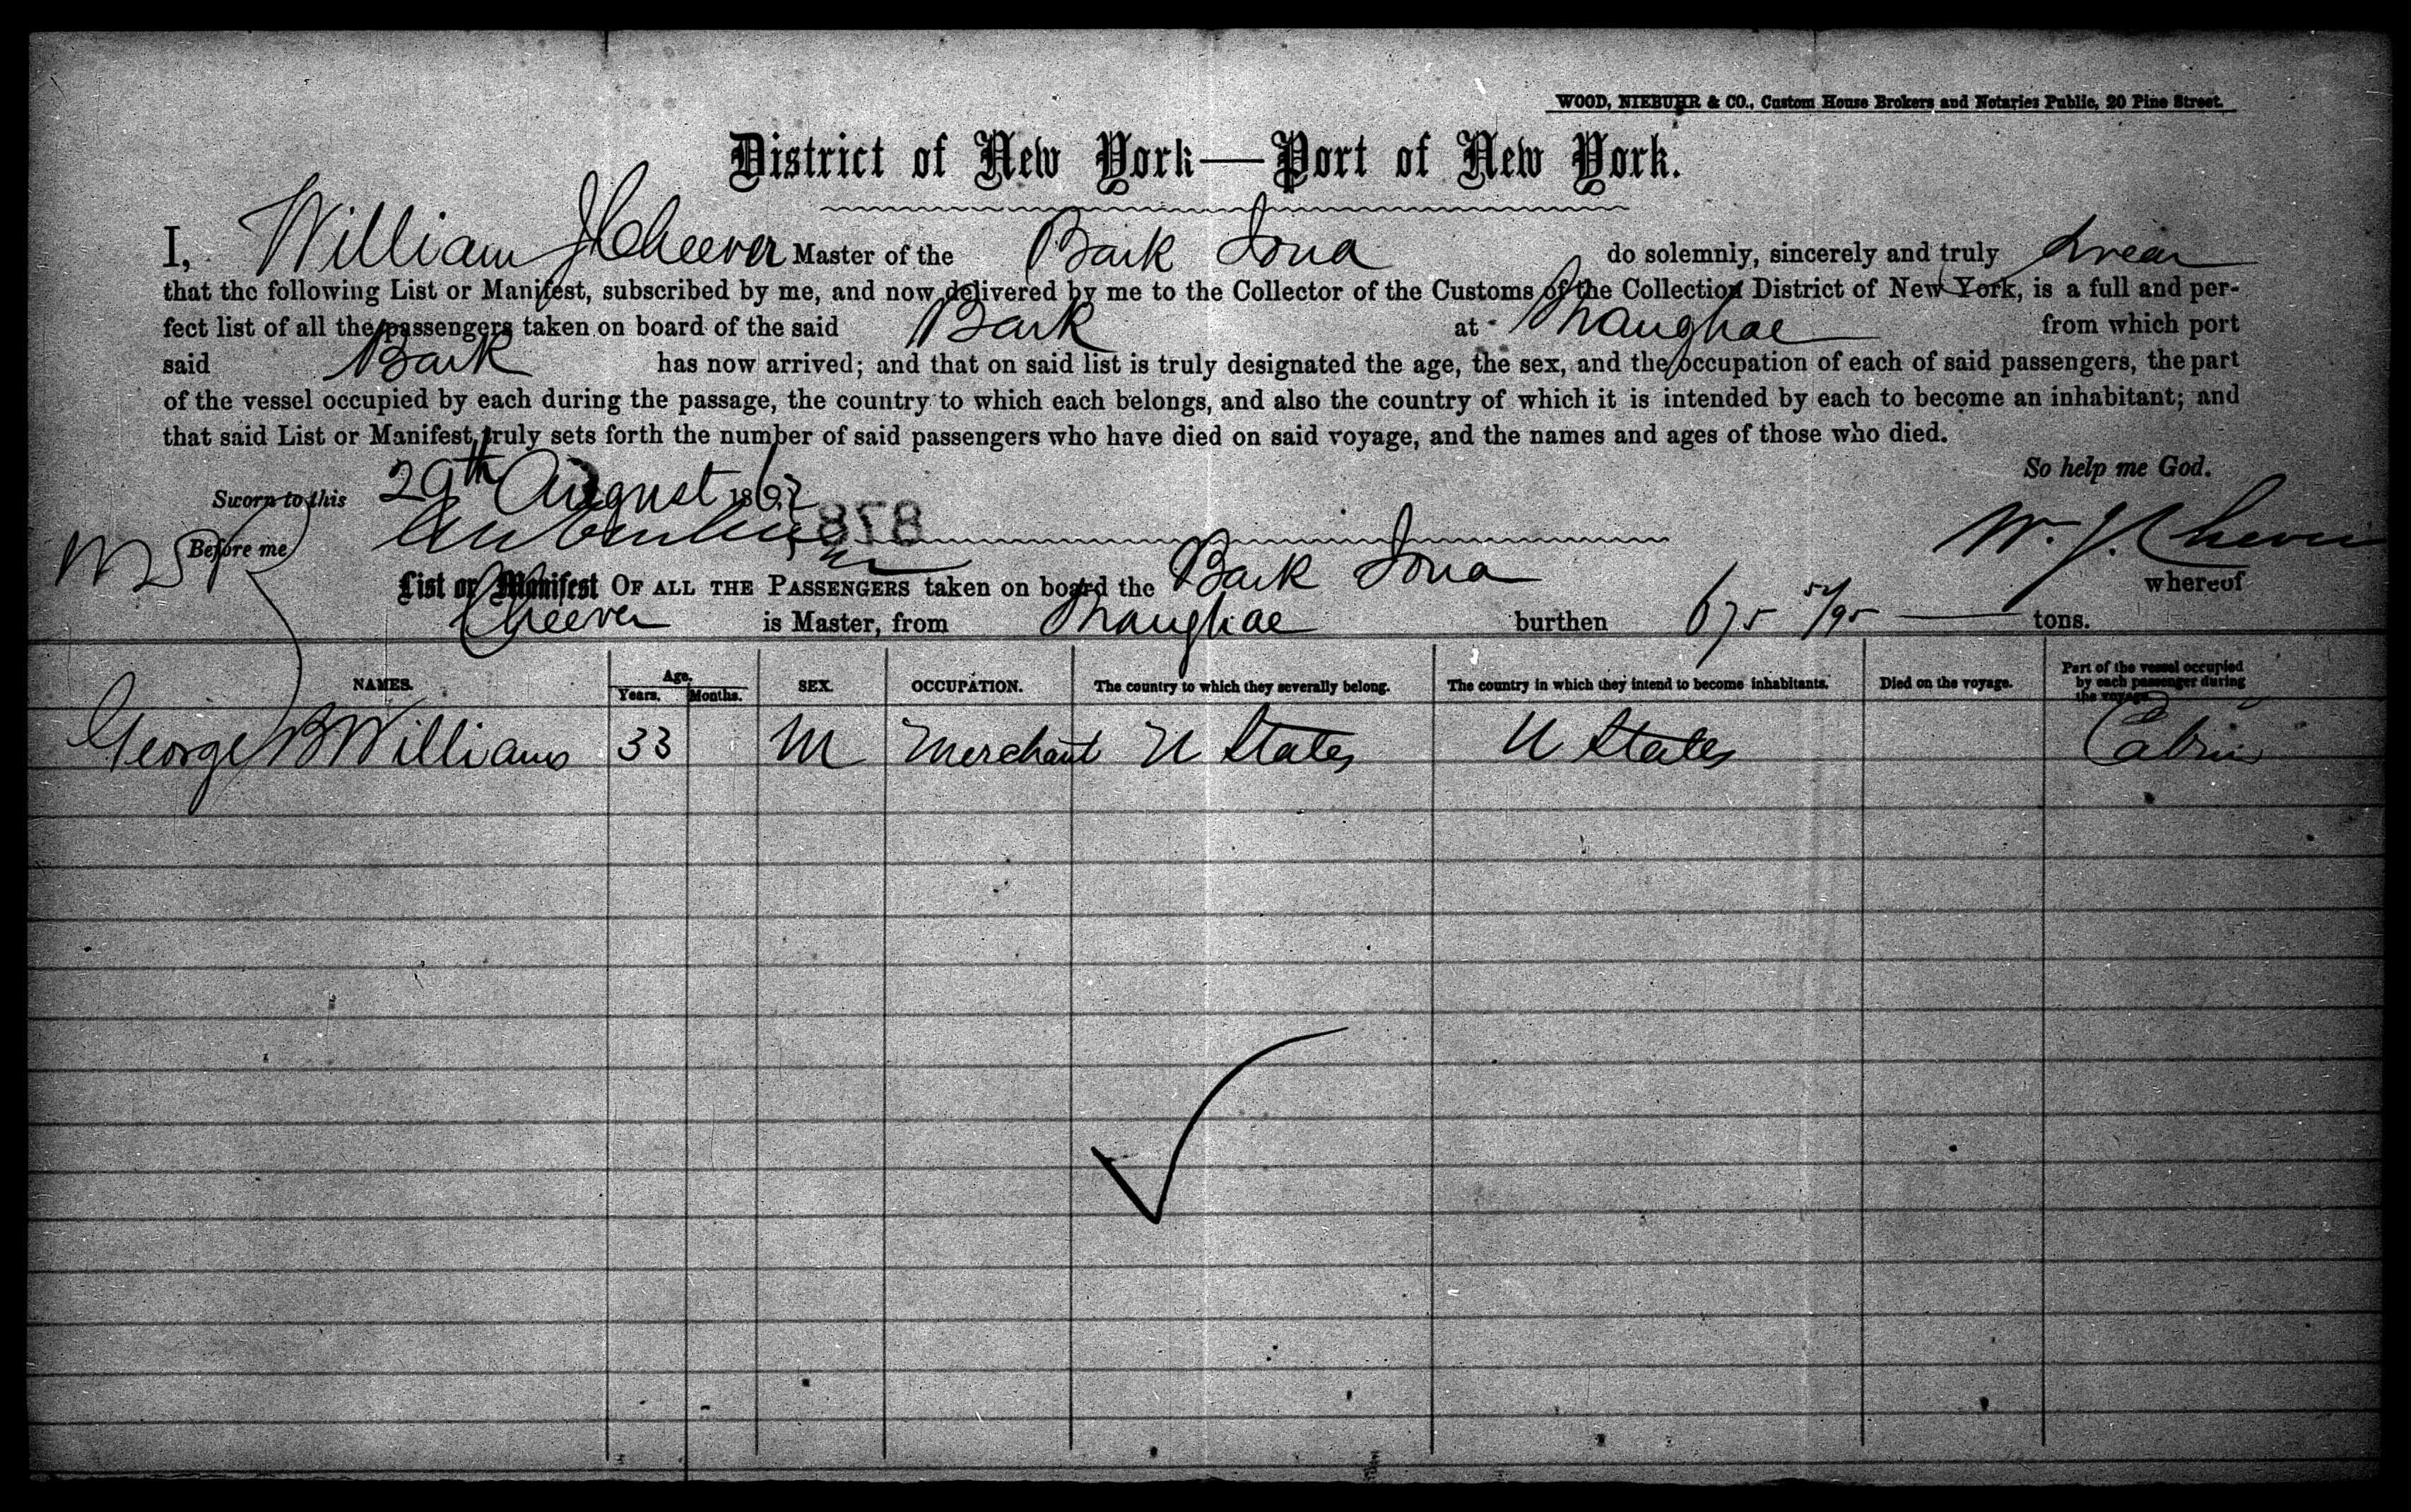 WOOD, NIEBUHR & CO., Custom House Brokers and Notaries Public, 20 Pine Street.
District of New York—Port of New York.
I, William J Cheever Master of the Bark Iona do solemnly, sincerely and truly swear
that the following List or Manifest, subscribed by me, and now delivered by me to the Collector of the Customs of the Collection District of New York, is a full and per-
fect list of all the passengers taken on board of the said Bark at Shanghae from which port
said Bark has now arrived; and that on said list is truly designated the age, the sex, and the occupation of each of said passengers, the part
of the vessel occupied by each during the passage, the country to which each belongs, and also the country of which it is intended by each to become an inhabitant; and
that said List or Manifest truly sets forth the number of said passengers who have died on said voyage, and the names and ages of those who died.
So help me God.
Sworn to this 29th August 1862
878
Before me
W. J. Cheever
List or Manifest OF ALL THE PASSENGERS taken on board the Bark Iona whereof
Cheever is Master, from Shanghae burthen 675 52/95 tons.
NAMES. Age. Years. Months. SEX. OCCUPATION. The country to which they severally belong. The country in which they intend to become inhabitants. Died on the voyage. Part of the vessel occupied by each passenger during the voyage.
George B Williams 33 M Merchant U States U States Cabin